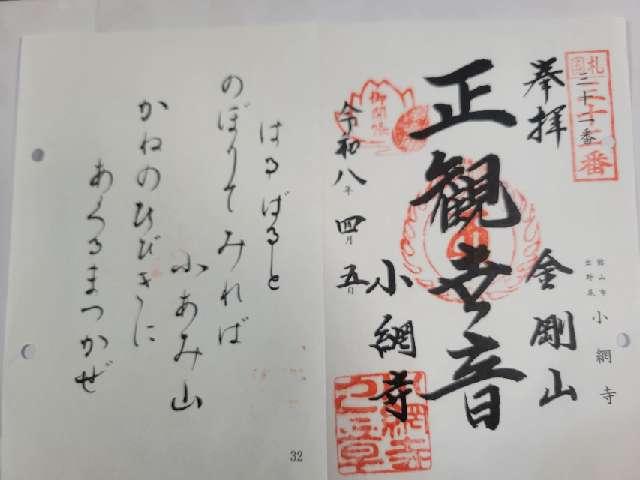 札
二十二番
奉拝
館山市
出野尾
小網寺
金剛山
正観世音
御開帳
小網寺
令和八年四月五日
はるばると
のぼりてみれば
小あみ山
かねのひびきに
あくるまつかぜ
32